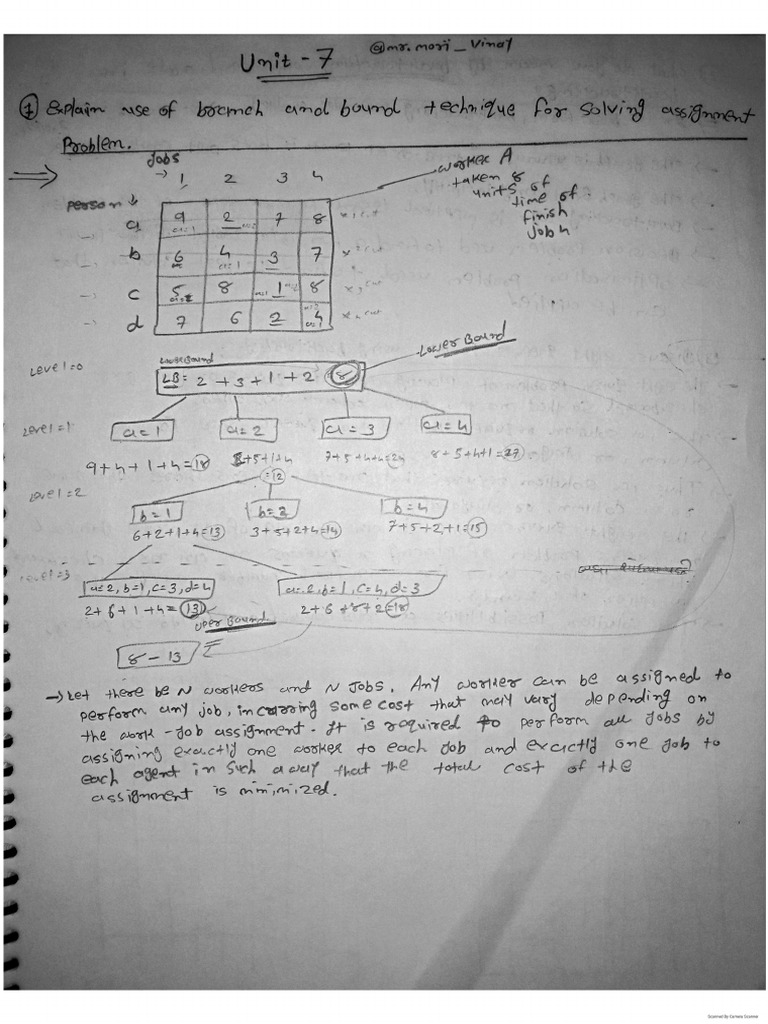 @mr.mori_vinay
Unit - 7
① Explain use of branch and bound technique for solving assignment
Problem.
Jobs
→ 1 2 3 4
worker A
taken 8
units of
time of
finish
job 4
Person ↓
a 9 2 7 8
b 6 4 3 7
c 5 8 1 8
d 7 6 2 4
Level=0
Lower Bound
LB = 2 + 3 + 1 + 2 = 8
Lower Bound
Level=1
a=1 a=2 a=3 a=4
9+4+1+4=18 2+5+1+4 =12 7+5+4+4=24 8+5+4+1=27
Level=2
b=1 b=3 b=4
6+2+1+4=13 3+5+2+4=14 7+5+2+1=15
Level=3
a=2, b=1, c=3, d=4 a=2, b=1, c=4, d=3
2+6+1+4=13 2+6+8+2=18
Uper Bound
8 - 13
→ Let there be N workers and N Jobs. Any worker can be assigned to
perform any job, incurring some cost that may vary depending on
the work-job assignment. It is required to perform all Jobs by
assigning exactly one worker to each Job and exactly one job to
each agent in such a way that the total cost of the
assignment is minimized.
Scanned By Camera Scanner